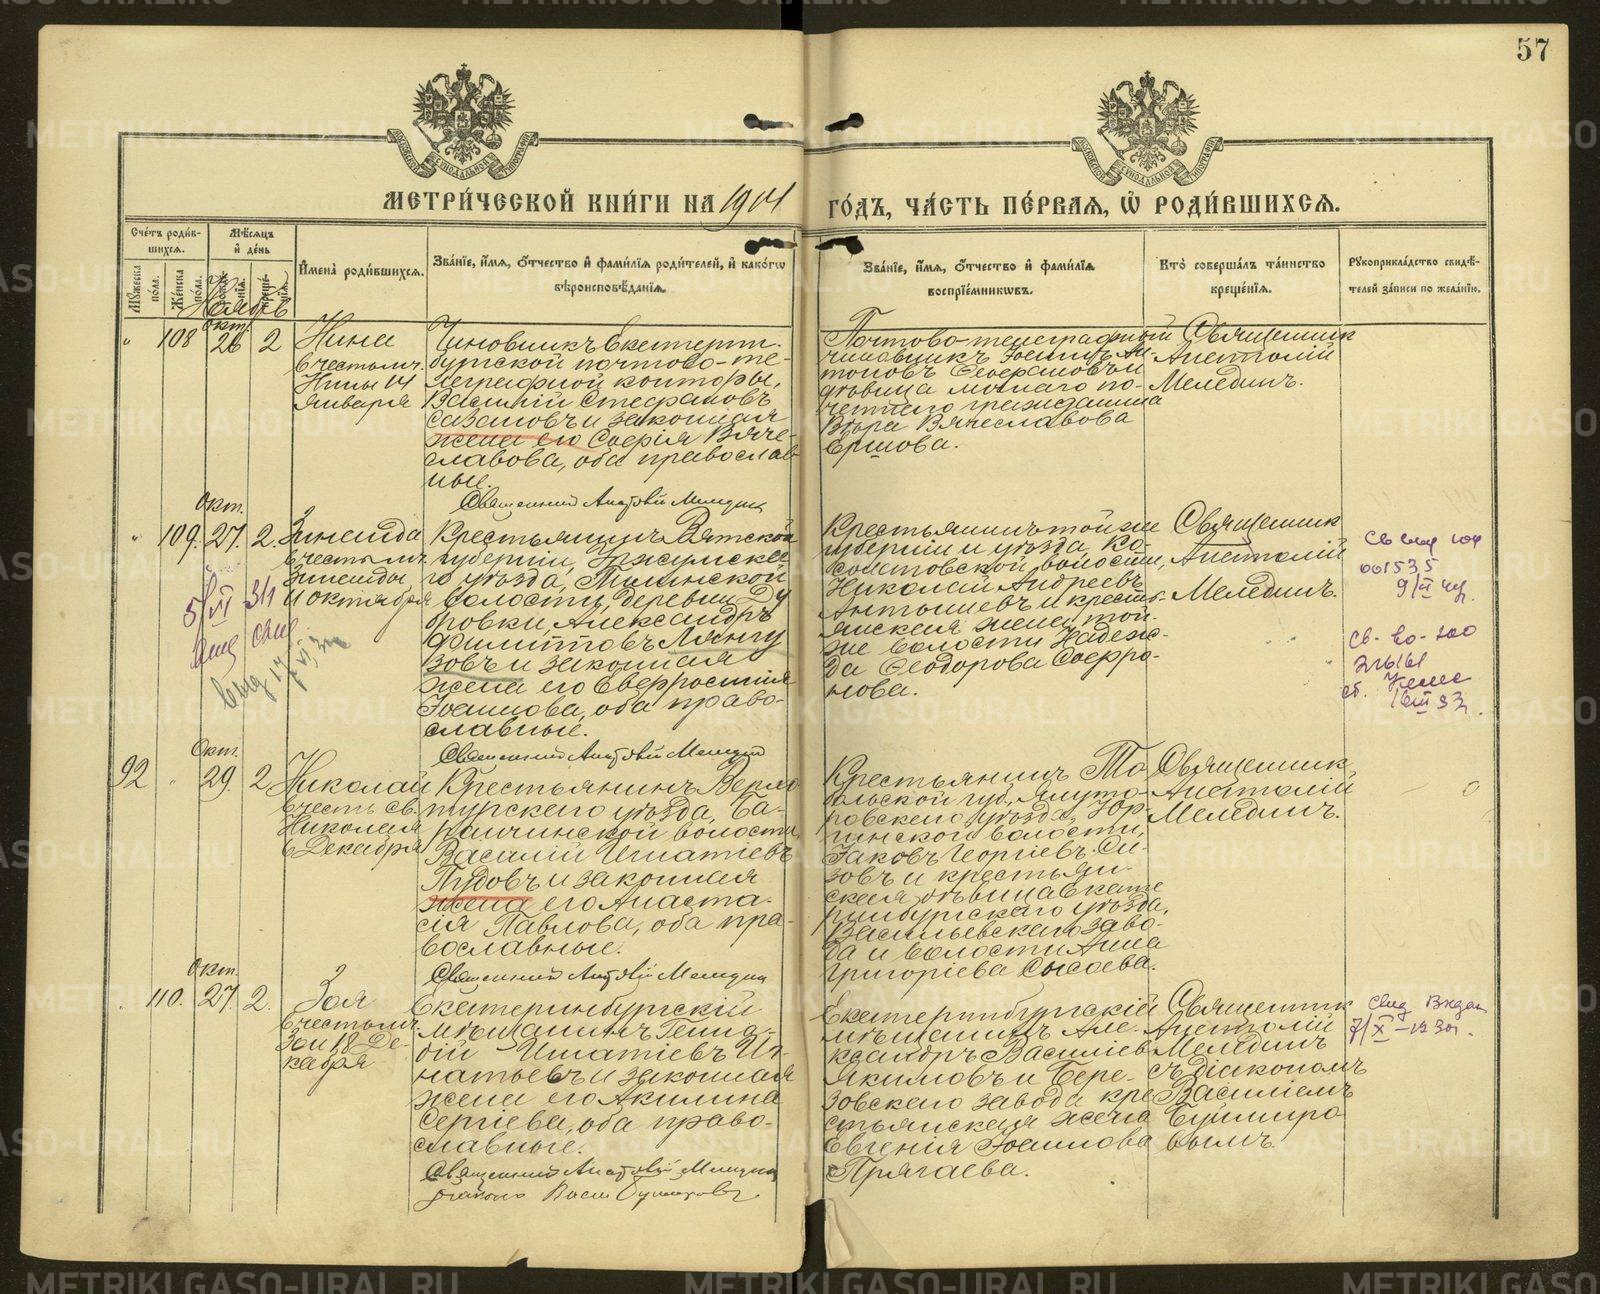 57
МЕТРИ́ЧЕСКОЙ КНИ́ГИ НА 1901
ГО́ДЪ, ЧА́СТЬ ПЕ́РВАЯ, Ѡ РОДИ́ВШИХСЯ.
Сче́тъ роди́в-
шихся.
Мѣ́сяцъ
и́ де́нь
Мꙋ́жеска
по́ла.
Же́нска
по́ла.
рожде́-
нія.
креще́-
нія.
И́мена̀ роди́вшихся.
Зва́ніе, и́мя, о́тчество и́ фами́лія роди́телей, и́ како́гѡ
вѣроисповѣ́данія.
Зва́ніе, и́мя, о́тчество и́ фами́лія
воспріе́мникѡвъ.
Кто̀ соверша́лъ та́инство
креще́нія.
Рꙋкоприкла́дство свидѣ́-
телей за́писи по жела́нію.
Ноябрь
окт.
108 26 2
Нина
в честь мч.
Нины 14
Января
Чиновникъ Екатерин-
бургской почтово-те-
леграфной конторы,
Василій Стефановъ
Сазановъ и законная
жена его Софія Вяче-
славова, оба православ-
ные.
Священникъ Анатолій Меледин
Почтово-телеграфный
чиновникъ Іоаннъ Ан-
тоновъ
дѣвица личнаго по-
четнаго гражданина
Вѣра Вячеславова
Ершова.
Священник
Анатолій
Мелединъ.
Окт.
109. 27. 2.
Зинаида
в честь мч.
Зинаиды
11 октября
Крестьянинъ Вятской
губерніи, Уржумска-
го уѣзда,
волости, деревни Ду
бровки, Александръ
Филипповъ Лянгу
зовъ и законная
жена его Евфросинія
Іоаннова, оба право-
славные.
Священникъ Анатолій Меледин
Крестьянинъ той же
губерніи и уѣзда, Ко-
волости,
Николай Андреевъ
Антышевъ и кресть-
янская жена той-
же волости Надеж-
да Ѳеодорова Софро-
нова.
Священник
Анатолій
Мелединъ.
001535
Окт.
92 29. 2
Николай
в честь св.
Николая
6 Декабря
Крестьянинъ Верхо
турскаго уѣзда, Ба-
ранчинской волости,
Василій Игнатіевъ
Пудовъ и законная
жена его Анаста-
сія Павлова, оба пра-
вославные.
Священникъ Анатолій Меледин
Крестьянинъ То
больской губ., Ялуто-
ровскаго уѣзда, Юр-
гинской волости,
Іаковъ Георгіевъ Си-
зовъ и крестьян-
ская дѣвица Екате
ринбургскаго уѣзда,
Васильевскаго заво-
да и волости Анна
Григоріева Сысоева.
Священник
Анатолій
Мелединъ.
Окт.
110. 27. 2.
Зоя
в честь мч.
Зои 18 Де-
кабря
Екатеринбургскій
мѣщанинъ Генна-
дій Игнатіевъ Иг-
натьевъ и законная
жена его Акилина
Сергіева, оба право-
славные.
Священникъ Анатолій Меледин
Екатеринбургскій
мѣщанинъ Але-
ксандръ Василіев
Якимовъ и Бере-
зовскаго завода кре
стьянская жена
Евгенія Іоаннова
Прягаева.
Священник
Анатолій
Мелединъ
съ діакономъ
Василіемъ